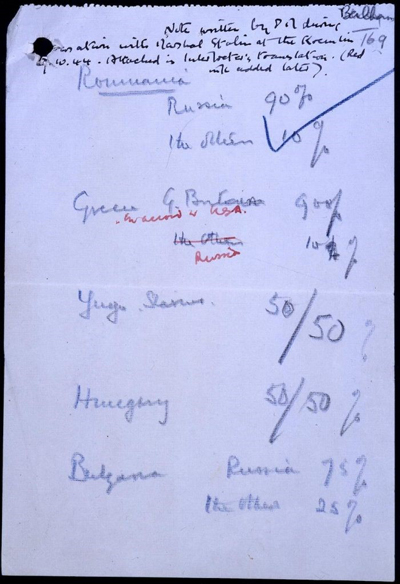 Note written by P.M during
conversation with Marshal Stalin at the Kremlin 169
9.10.44. Attached is Interpreter's translation. (Red
ink added later).
Roumania
Russia 90%
The others 10%
Greece G. Britain 90%
in accord w USA.
The Others 10%
Russia
Yugo.slavia 50/50 %
Hungary 50/50 %
Bulgaria Russia 75%
the others 25%